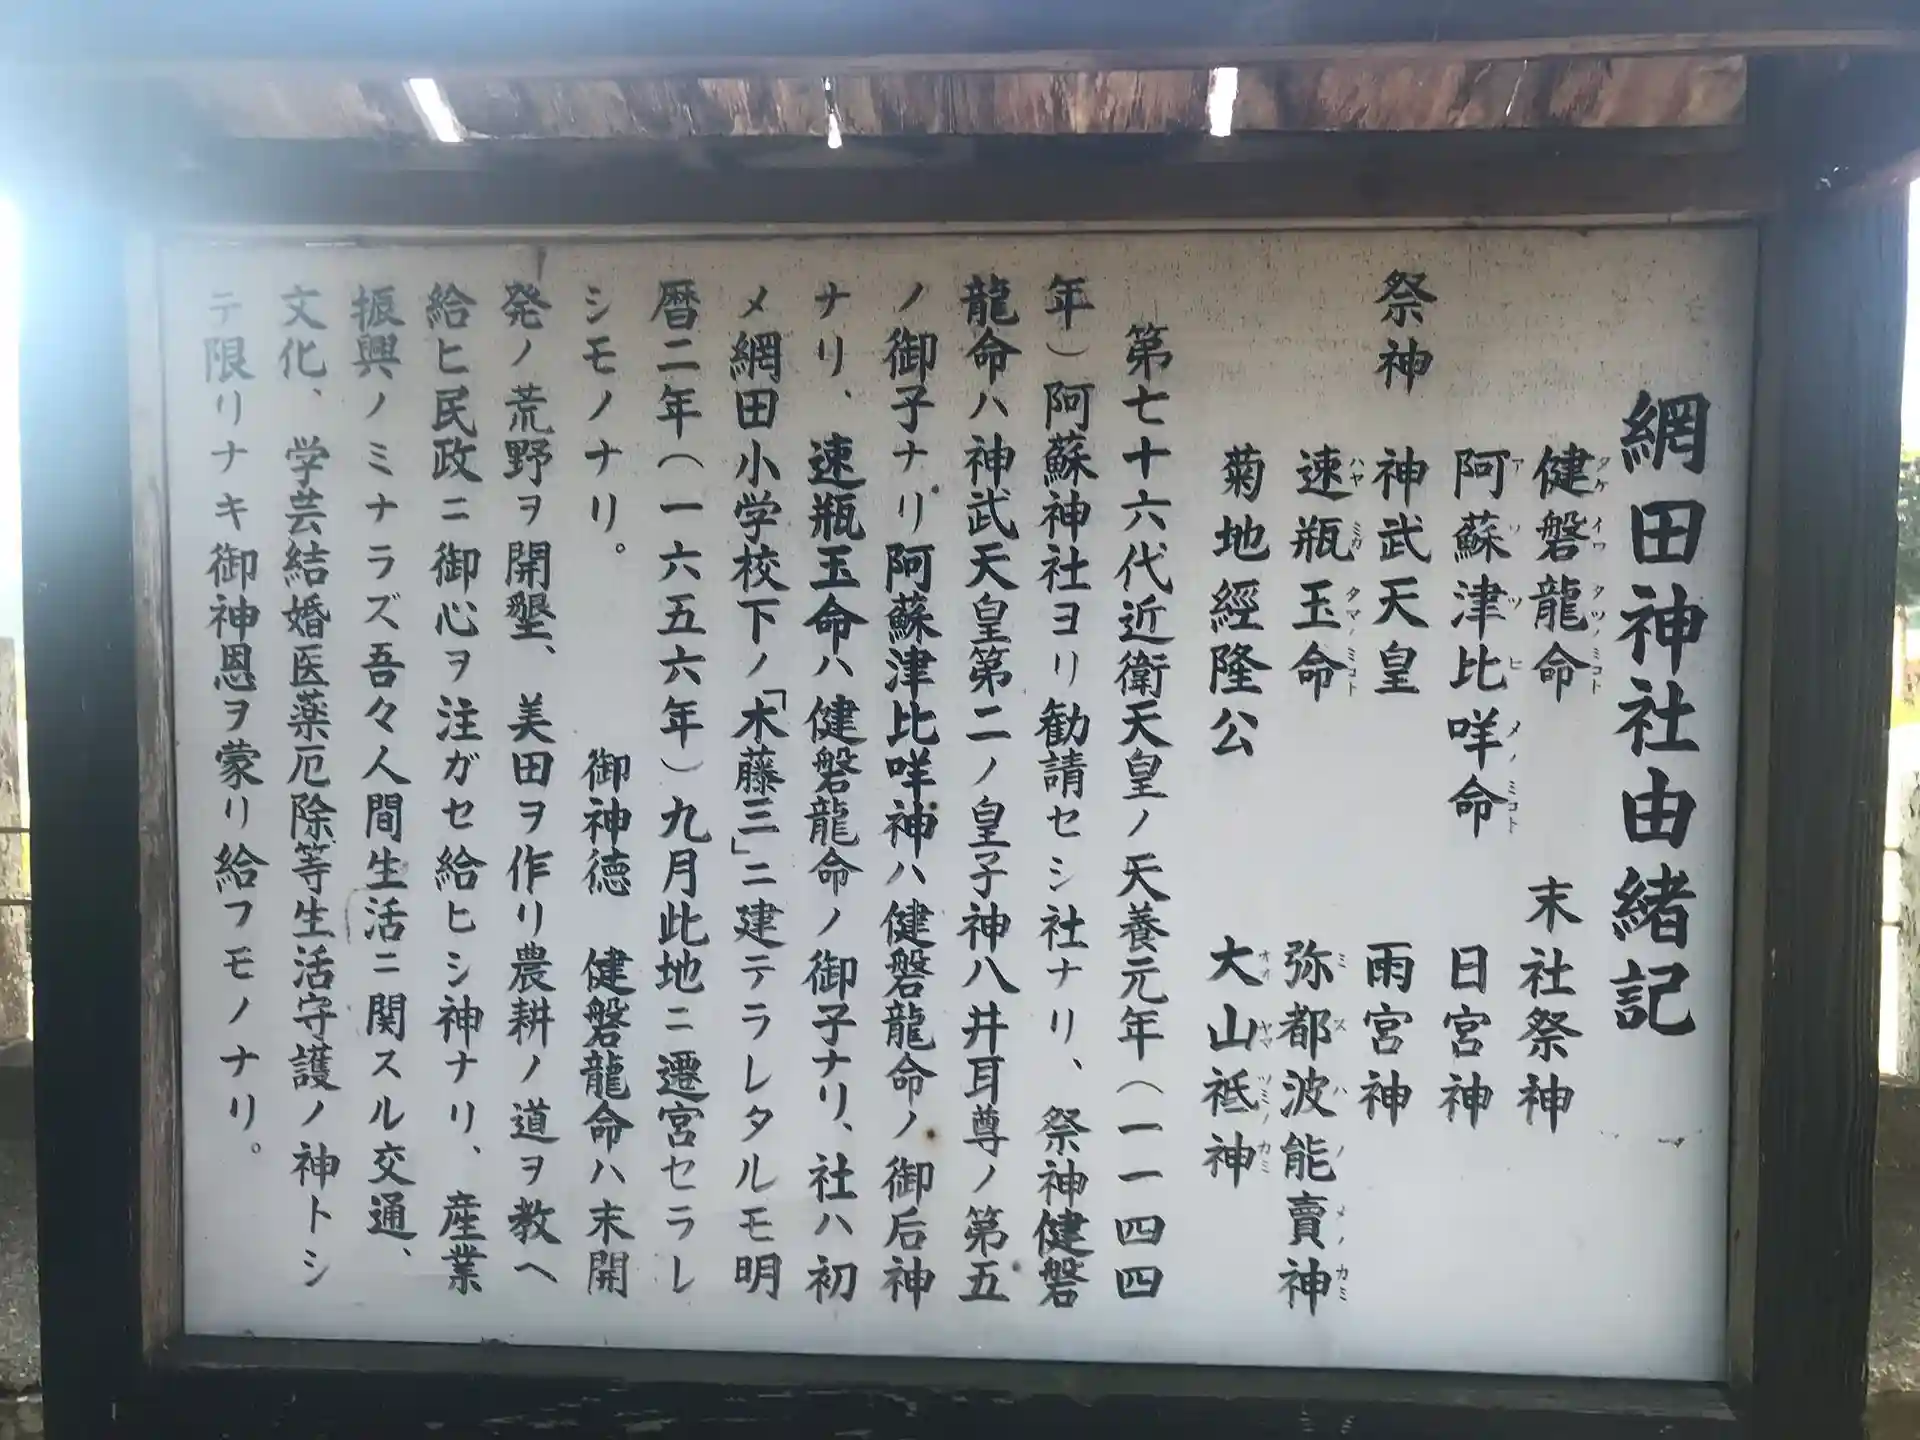 網田神社由緒記
健磐龍命
タケイワタツノミコト
末社祭神
阿蘇津比咩命
アソツヒメノミコト
日宮神
祭神
神武天皇
雨宮神
速瓶玉命
ハヤミカタマノミコト
弥都波能賣神
ミズハノメノカミ
菊地經隆公
大山祇神
オオヤマツミノカミ
第七十六代近衛天皇ノ天養元年(一一四四
年)阿蘇神社ヨリ勧請セシ社ナリ、祭神健磐
龍命ハ神武天皇第二ノ皇子神八井耳尊ノ第五
ノ御子ナリ阿蘇津比咩神ハ健磐龍命ノ御后神
ナリ、速瓶玉命ハ健磐龍命ノ御子ナリ、社ハ初
メ網田小学校下ノ「木藤三」ニ建テラレタルモ明
暦二年(一六五六年)九月此地ニ遷宮セラレ
シモノナリ。　御神徳　健磐龍命ハ末開
発ノ荒野ヲ開墾、美田ヲ作リ農耕ノ道ヲ教ヘ
給ヒ民政ニ御心ヲ注ガセ給ヒシ神ナリ、産業
振興ノミナラズ吾々人間生活ニ関スル交通、
文化、学芸結婚医薬厄除等生活守護ノ神トシ
テ限リナキ御神恩ヲ蒙リ給フモノナリ。